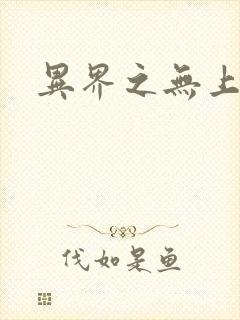 異界之無上
伐如是鱼